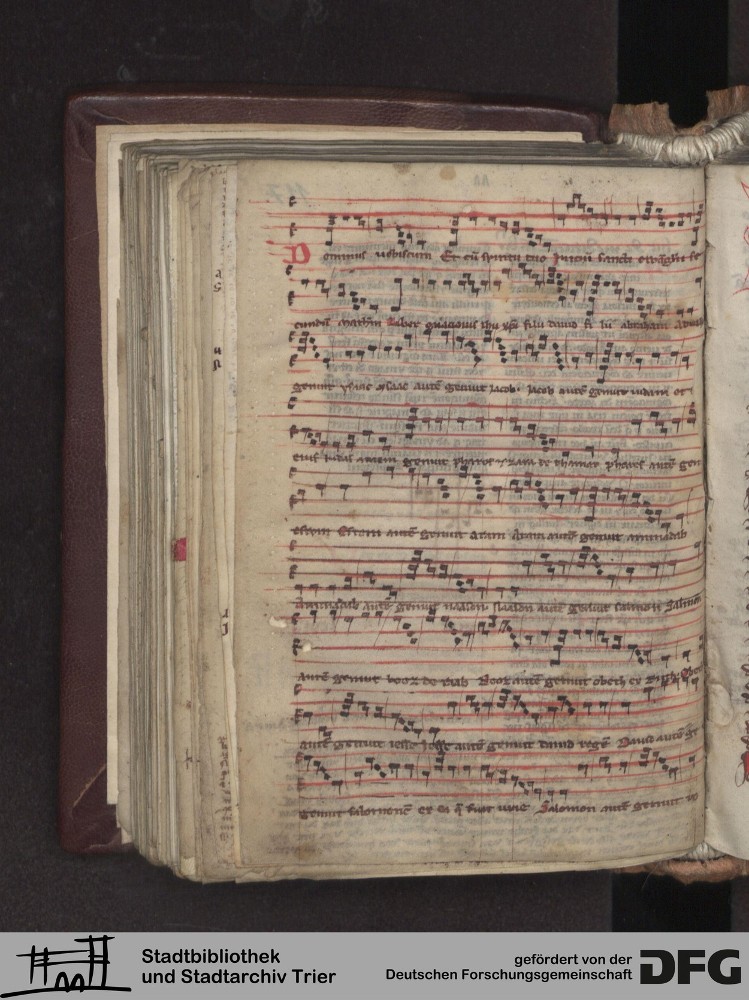 Dominus vobiscum Et cū spiritu tuo Inicium sancti ewāgelii se
cundū Mathm̄ Liber gn̄acionis ihu xp̄i filii dauid
genuit ysaac ysaac autē genuit Jacob Jacob autē genuit iudam et
eius Judas autem genuit phares zaram de thamar phares autē gen
esrom Esrom autē genuit Aram Aram autē genuit aminadab
Aminadab autē genuit naason Naason autē genuit salmon Salmon
autē genuit booz de raab Booz autē genuit obeth ex
autē genuit iesse Jesse autē genuit dauid regē Dauid autē ge
genuit salomonē ex ea q̄ fuit urie Salomon autē genuit ro
Stadtbibliothek
und Stadtarchiv Trier
gefördert von der
Deutschen Forschungsgemeinschaft
DFG